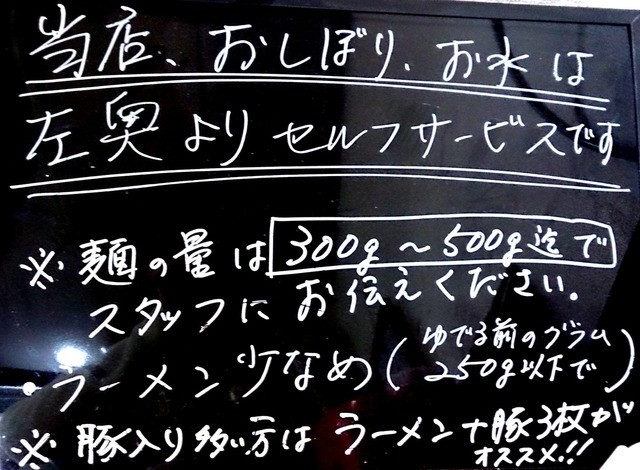 当店、おしぼり、お水は
左奥よりセルフサービスです
※麺の量は300g～500g迄で
スタッフにお伝えください.
ラーメン少なめ(ゆでる前のグラム
250g以下で)
※豚入り多い方はラーメン+豚3枚が
オススメ!!